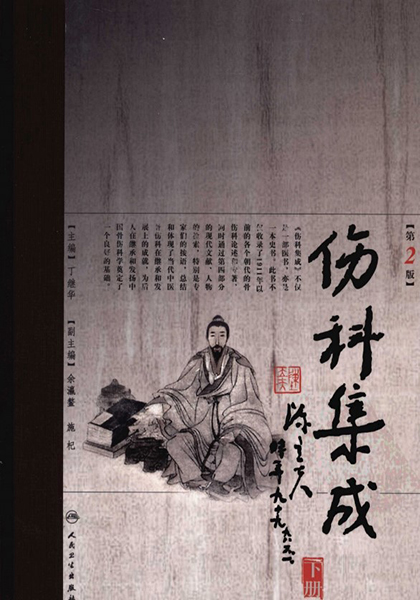 【第2版】
伤科集成
下册
陈立夫
时年九十九
《伤科集成》不仅
是一部医书,亦是
一本史书,此书不
仅收录了1911年以
前的各个朝代的骨
伤科论述和专著,
同时通过第四部分
的现代文献、人物
的检索,特别是专
家们的按语,总结
和体现了当代中医
骨伤科在继承和发
展上的成就,为后
人在继承和发扬中
国骨伤科学奠定了
一个良好的基础。
【主编】丁继华
【副主编】余瀛鳌 施杞
人民卫生出版社